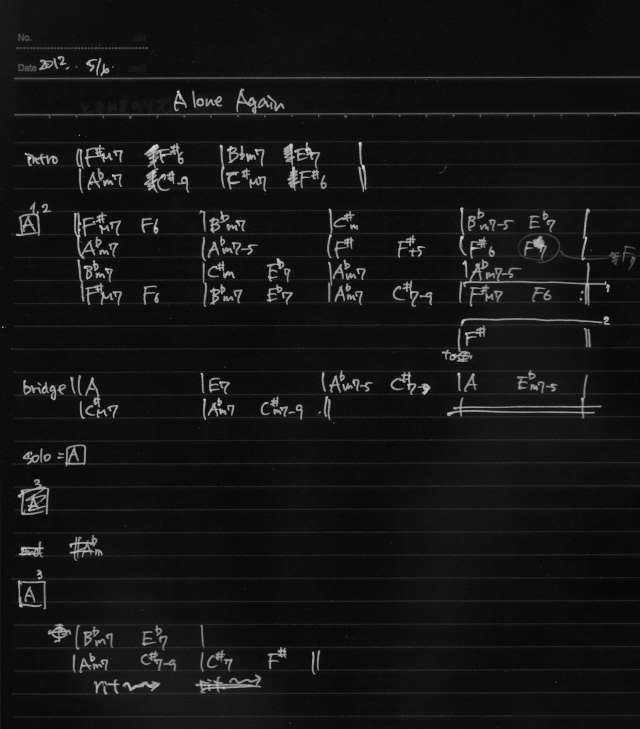 No.
Date 2012. 5/6.
Alone Again
intro ||F#M7 F#6 |Bbm7 Eb7 |
|Abm7 C#-9 |F#M7 F#6 ||
A 1,2 ||:F#M7 F6 |Bbm7 |C#m |Bbm7-5 Eb7 |
|Abm7 |Abm7-5 |F# F#+5 |F#6 F#7 | F7
|Bbm7 |C#m Eb7 |Abm7 |Abm7-5 |
|F#M7 F6 |Bbm7 Eb7 |Abm7 C#7-9 |F#M7 F6 :| 1
2
|F# ||
to
bridge ||A |E7 |Abm7-5 C#7-9 |A Ebm7-5 |
|C#M7 |Abm7 C#m7-9 ||
solo = A
3
A
end #Abm
3
A
|Bbm7 Eb7 |
|Abm7 C#7-9 |C#7 F# ||
rit rit